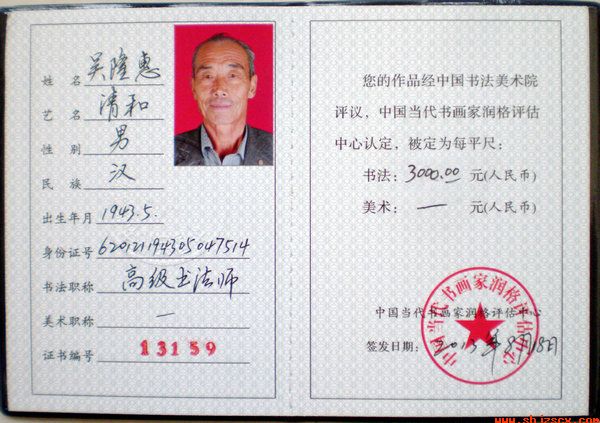 姓名 吴隆惠
艺名 清和
性别 男
民族 汉
出生年月 1943.5.
身份证号 620121194305047514
书法职称 高级书法师
美术职称 一
证书编号 13159
您的作品经中国书法美术院
评议，中国当代书画家润格评估
中心认定，被定为每平尺：
书法：3000.00 元(人民币)
美术：一 元(人民币)
中国当代书画家润格评估中心
签发日期：2013年8月18日
中国当代书画家润格评估中心
www.shjzscx.com